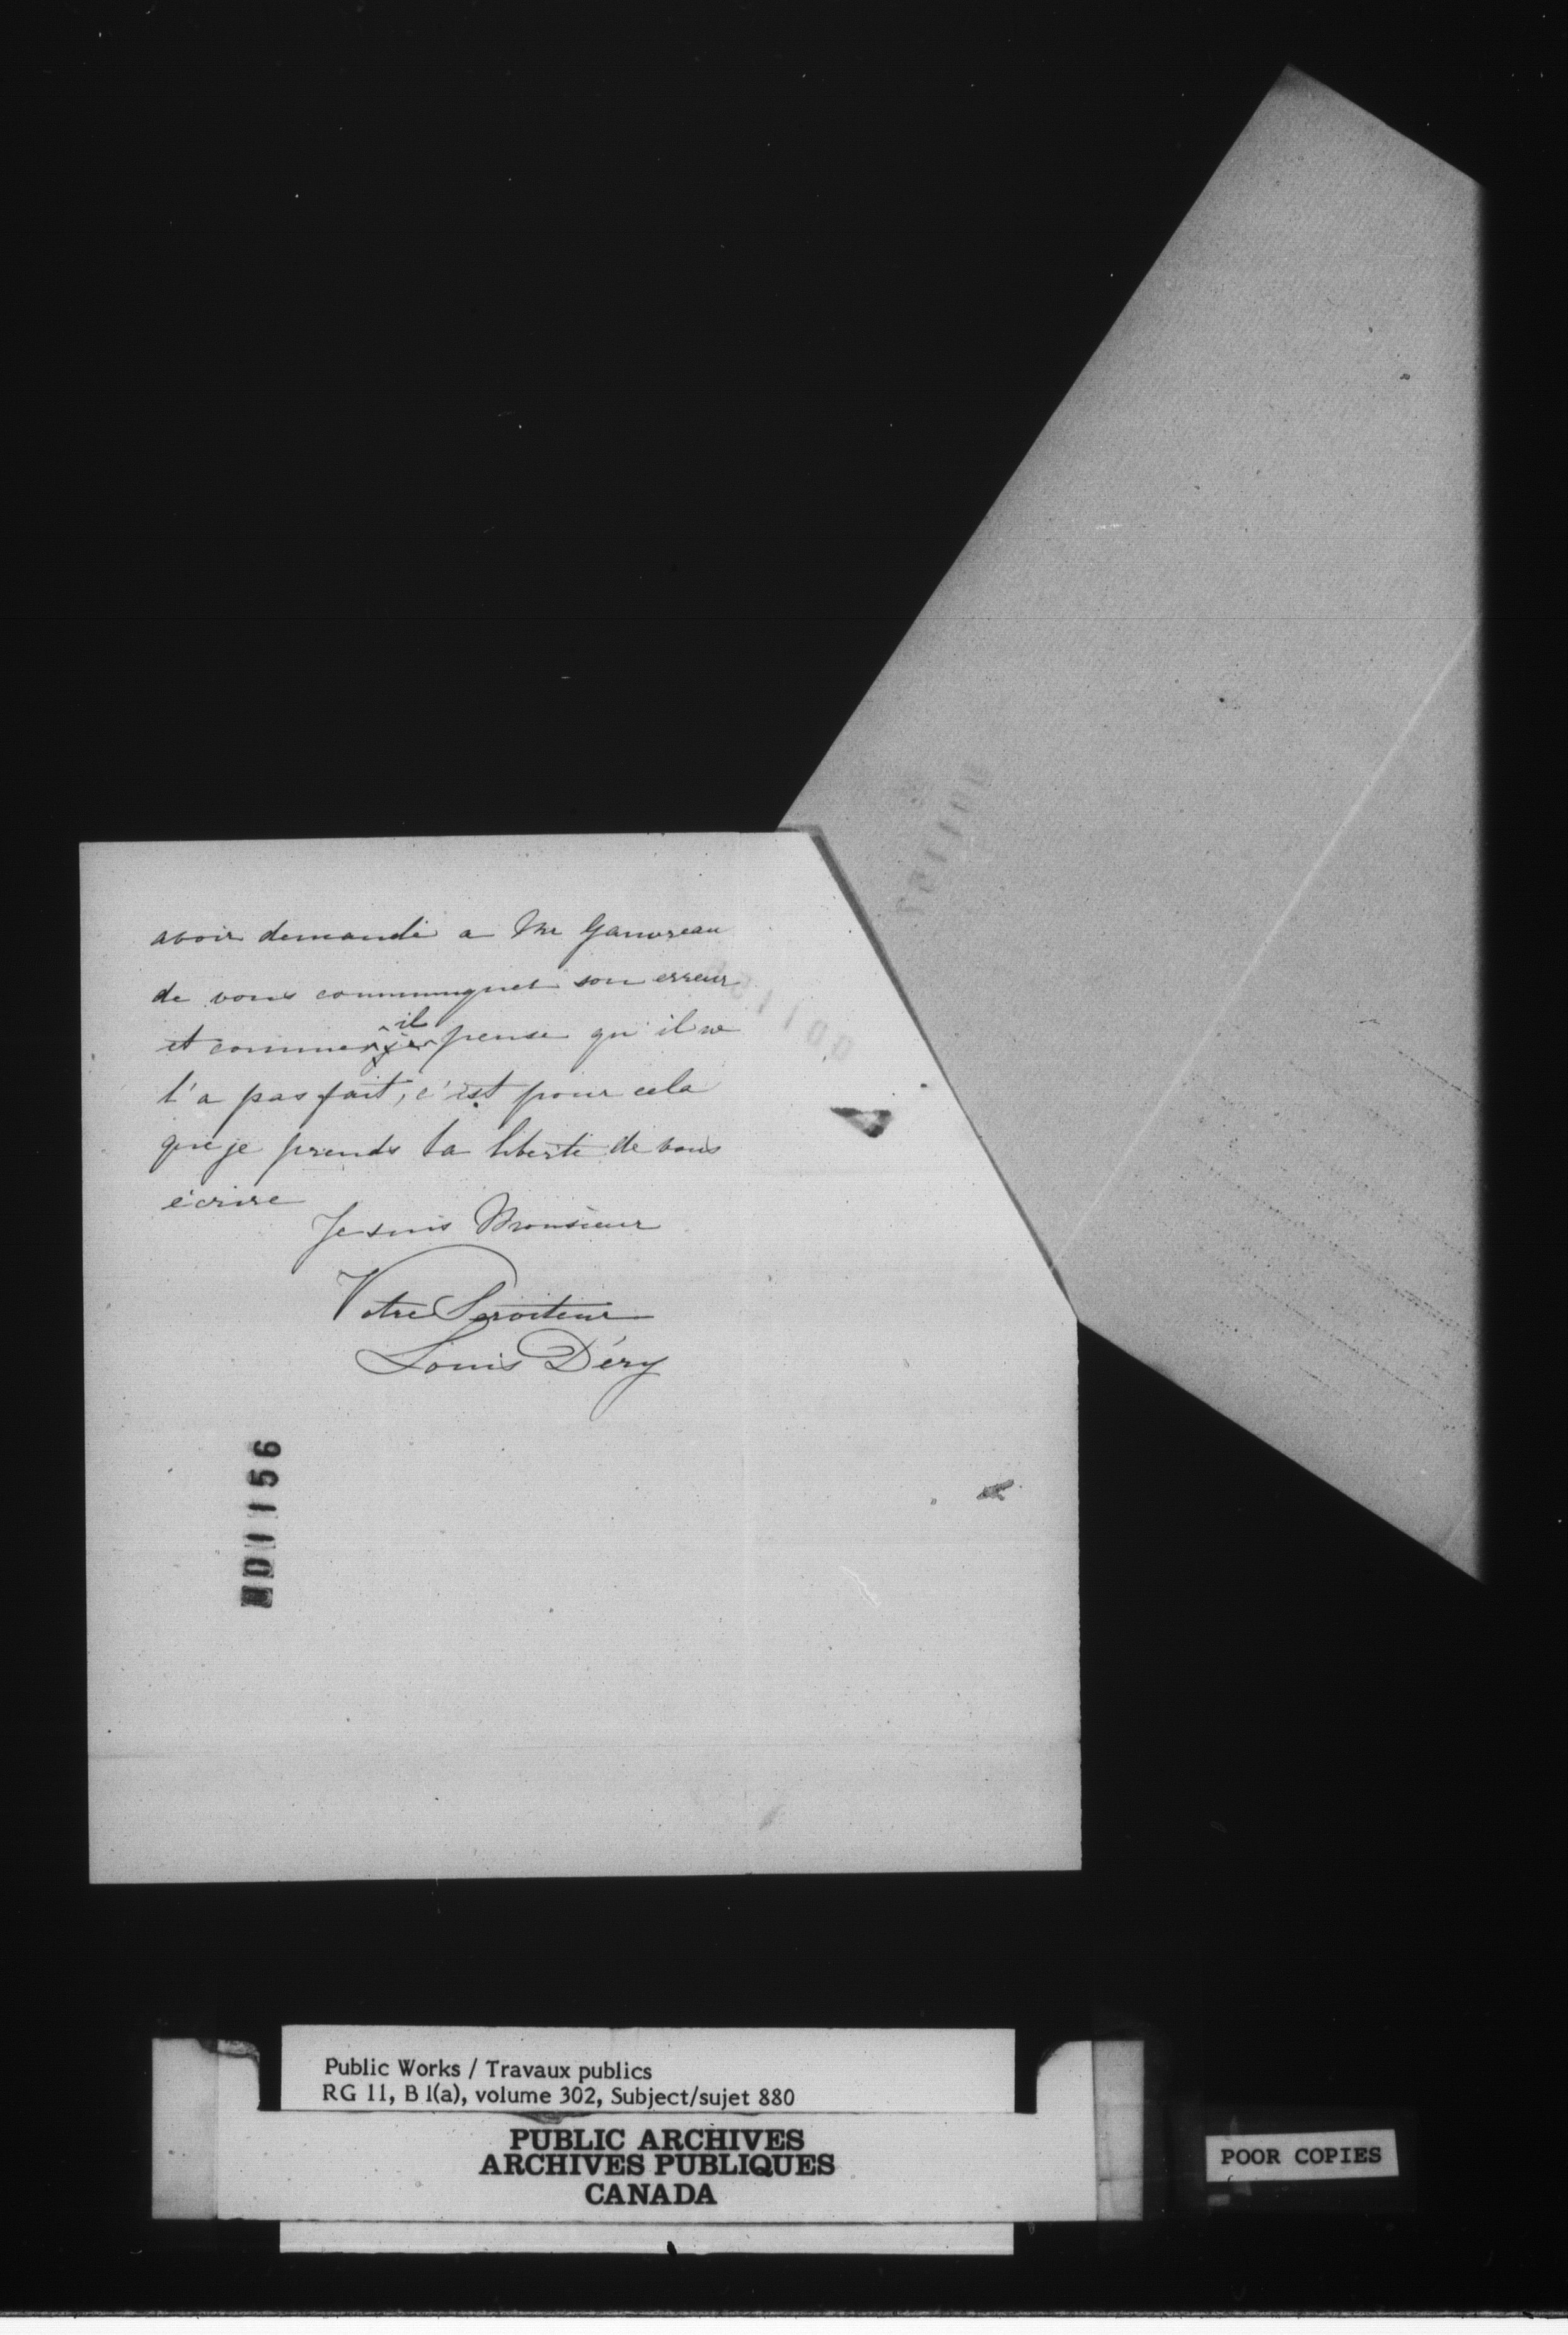 avoir demandé a Mr Gauvreau
de vous communiquer son erreur
et comme il pense qu'il ne
l'a pas fait, c'est pour cela
que je prends la liberté de vous
écrire
Je suis Monsieur
Votre Serviteur
Louis Déry
001156
Public Works / Travaux publics
RG 11, B 1(a), volume 302, Subject/sujet 880
PUBLIC ARCHIVES
ARCHIVES PUBLIQUES
CANADA
POOR COPIES